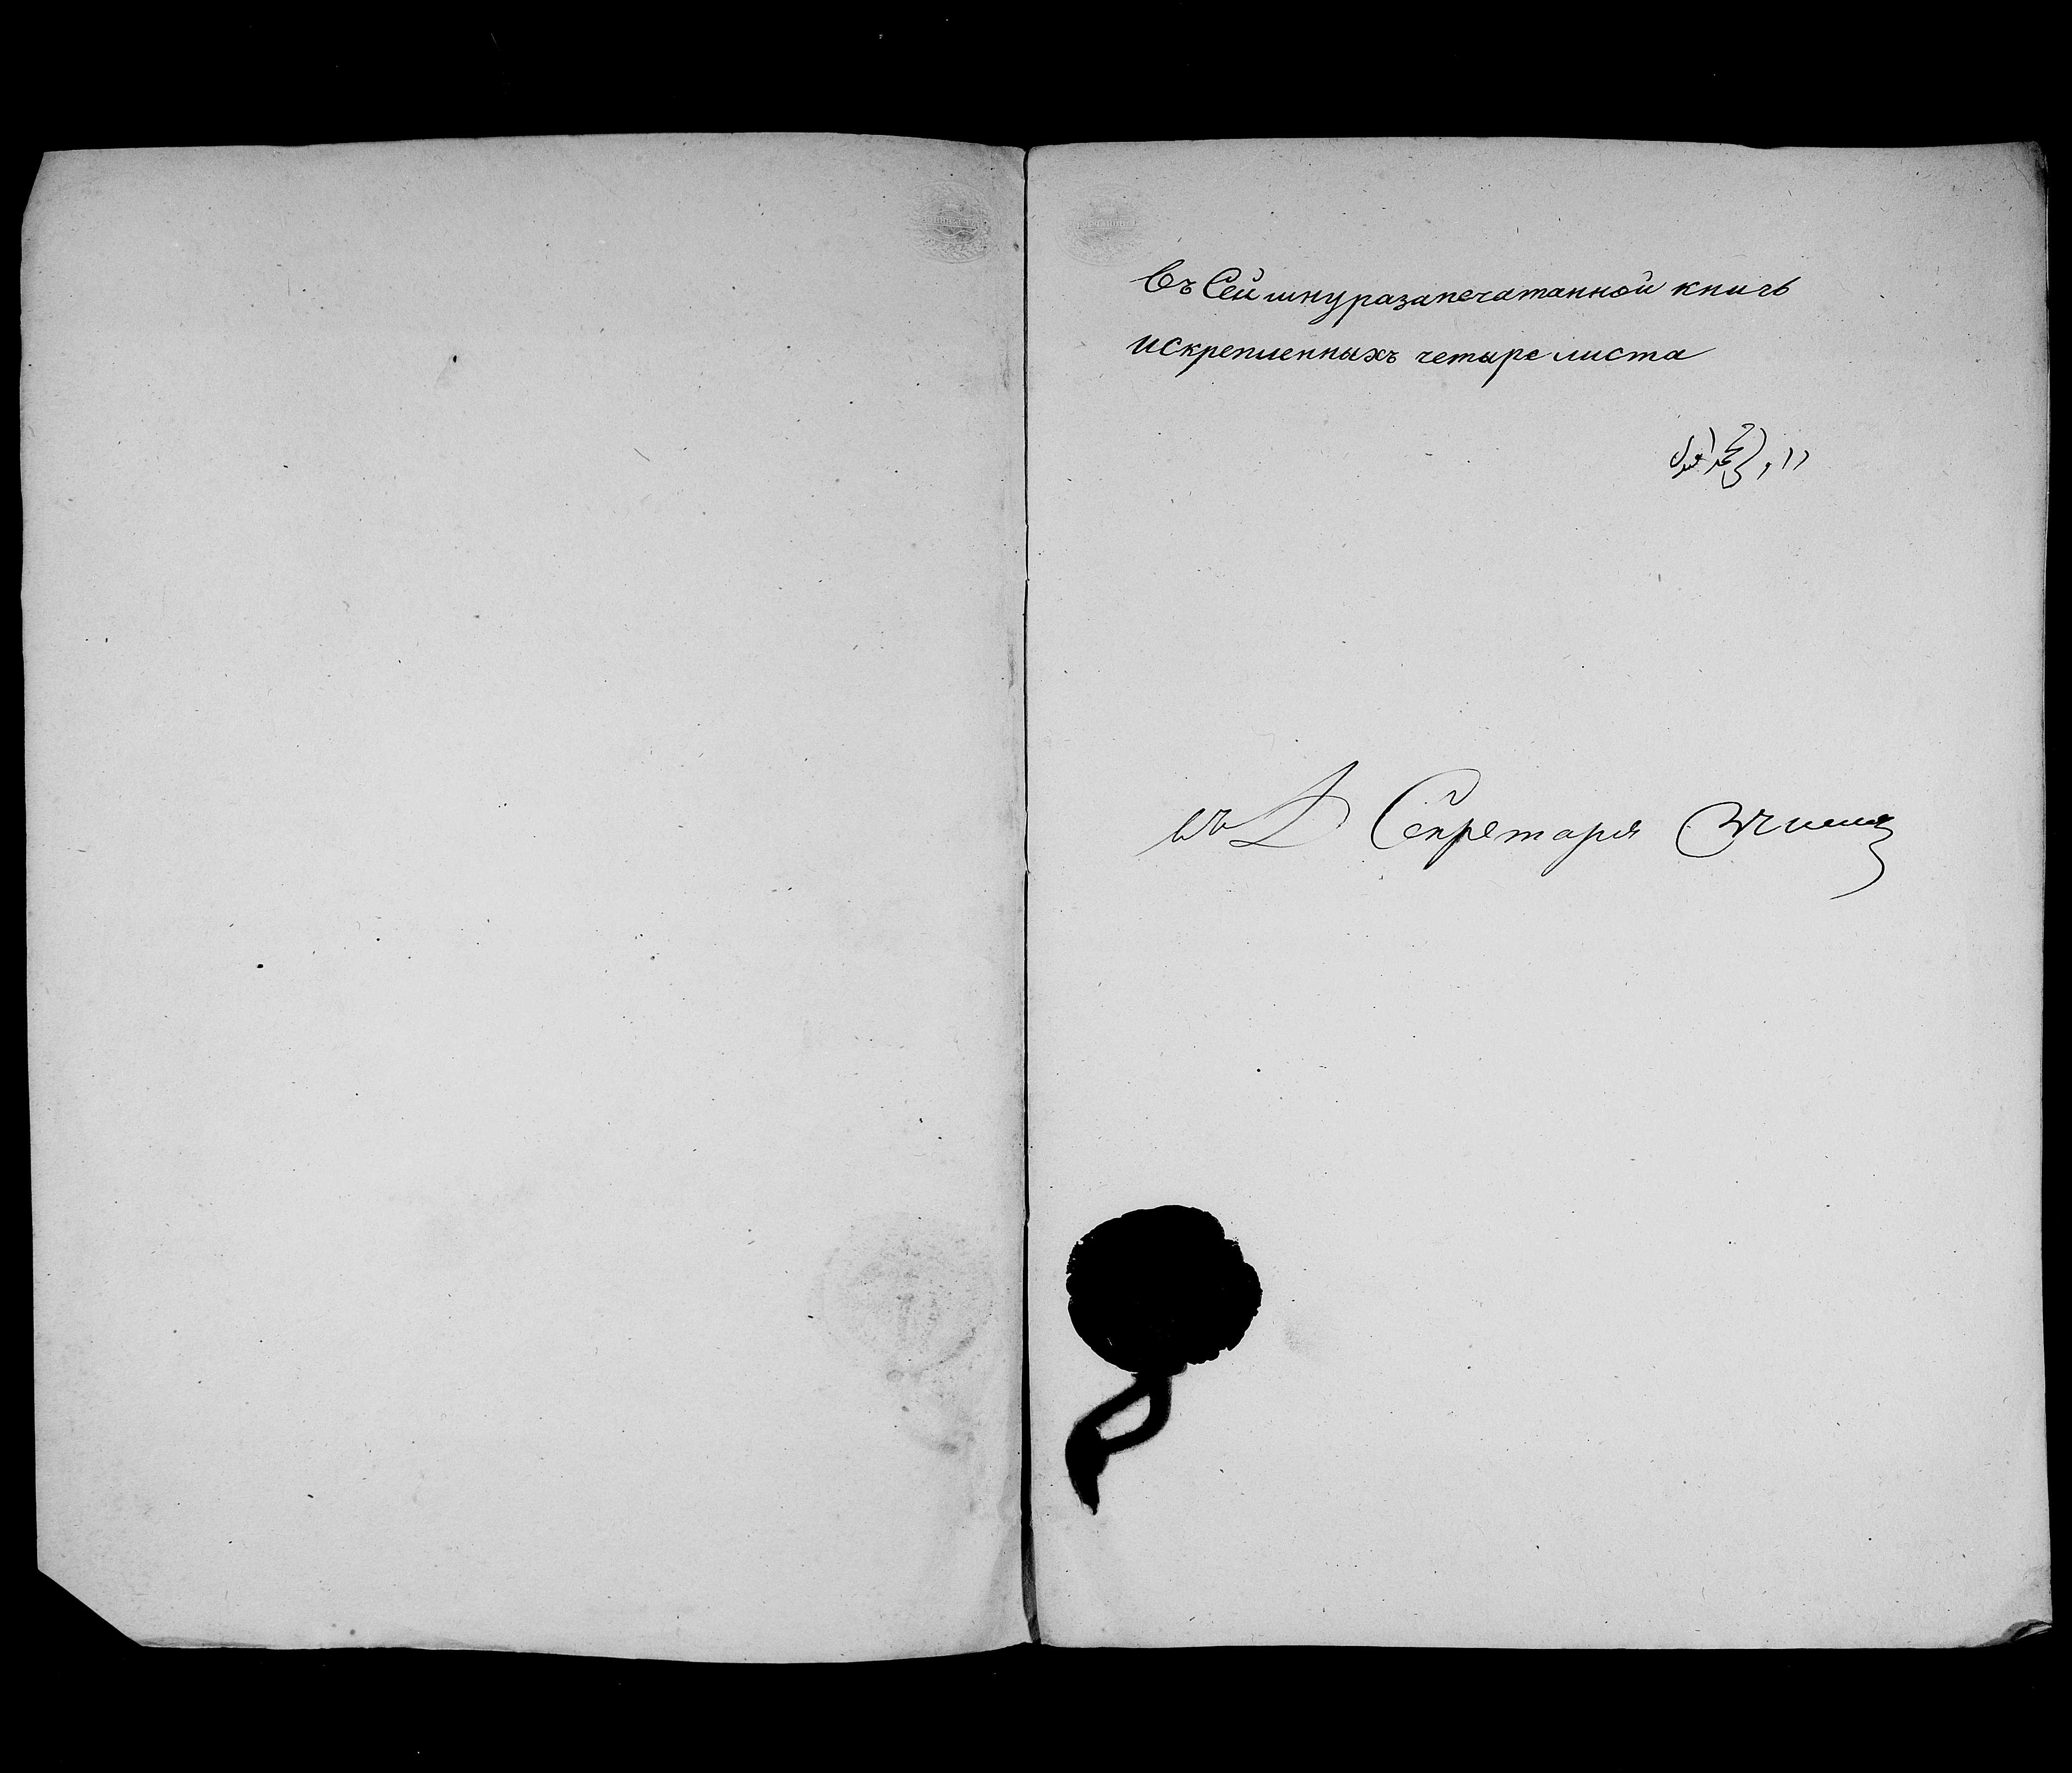 Въ Сей шнуразапечатанной книгѣ
искрепленныхъ четыре листа
въ Д Секретаря